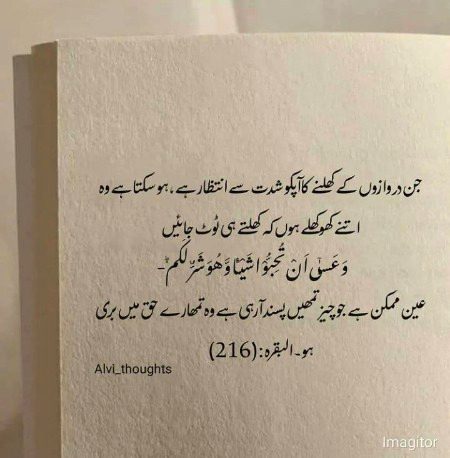 جن دروازوں کے کھلنے کا آپکو شدت سے انتظار ہے، ہو سکتا ہے وہ
اتنے کھوکھلے ہوں کہ کھلتے ہی ٹوٹ جائیں
وَعَسٰٓى اَنۡ تُحِبُّوۡا شَيۡـًٔا وَّهُوَ شَرٌّ لَّـكُمۡؕ-
عین ممکن ہے جو چیز تمھیں پسند آرہی ہے وہ تمھارے حق میں بری
ہو۔ البقرہ:(216)
Alvi_thoughts
Imagitor